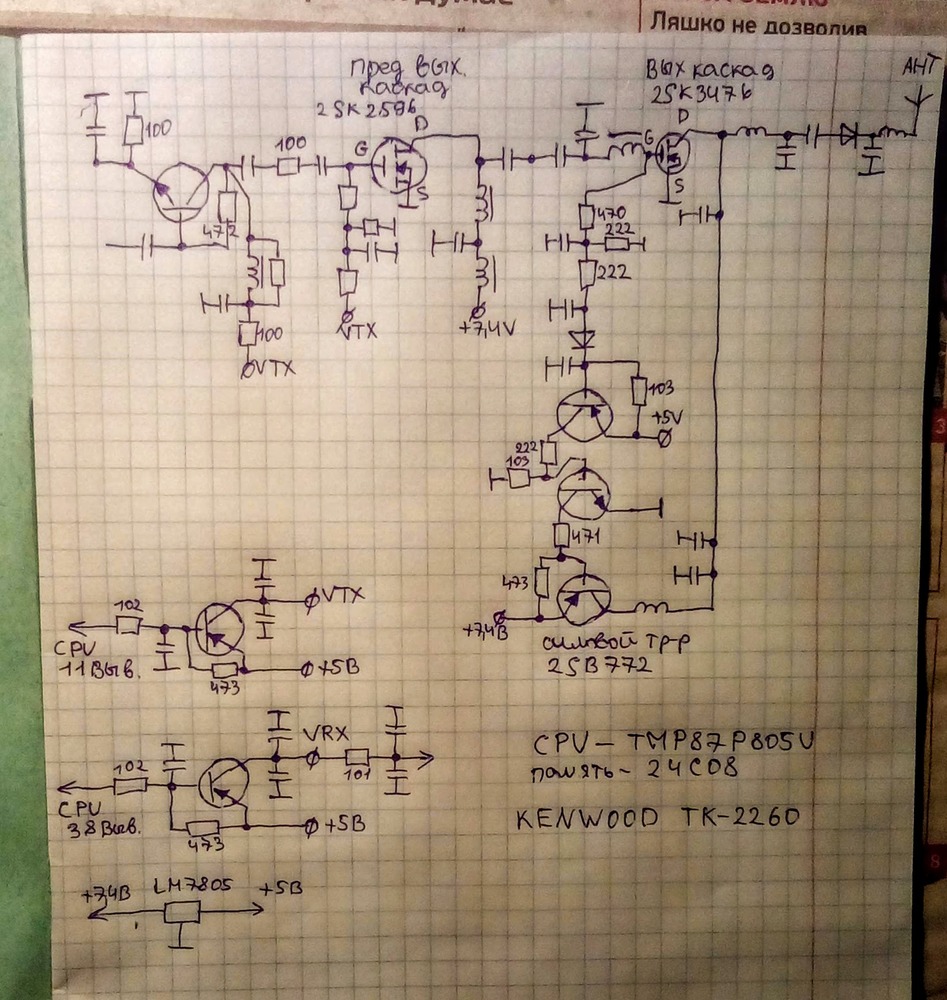 Ляшко не дозволив
АНТ
Пред вых.
каскад
2SK2596
Вых каскад
2SK3476
D
D
100
100
G
G
S
S
472
470
222
222
100
VTX
VTX
+7,4V
103
+5V
222
103
471
473
+7,4В
силовой тр-р
2SB772
102
VTX
CPU
11 Выв.
+5В
473
VRX
102
101
CPU
38 Выв.
+5В
473
CPU - TMP87P805U
память - 24C08
KENWOOD TK-2260
+7,4В LM7805 +5В